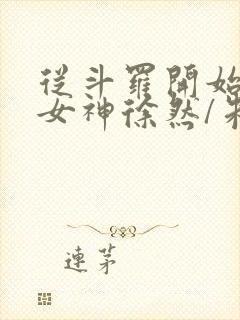 從斗羅開始
女神徐然/朱
連茅